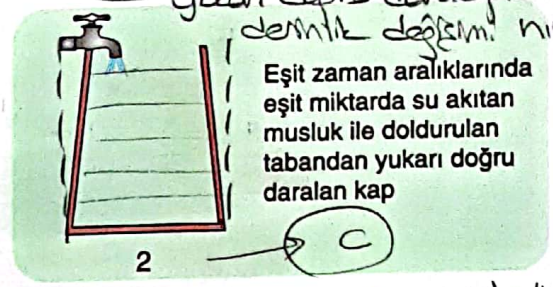 derinlik değişimi
Eşit zaman aralıklarında
eşit miktarda su akıtan
musluk ile doldurulan
tabandan yukarı doğru
daralan kap
2
C